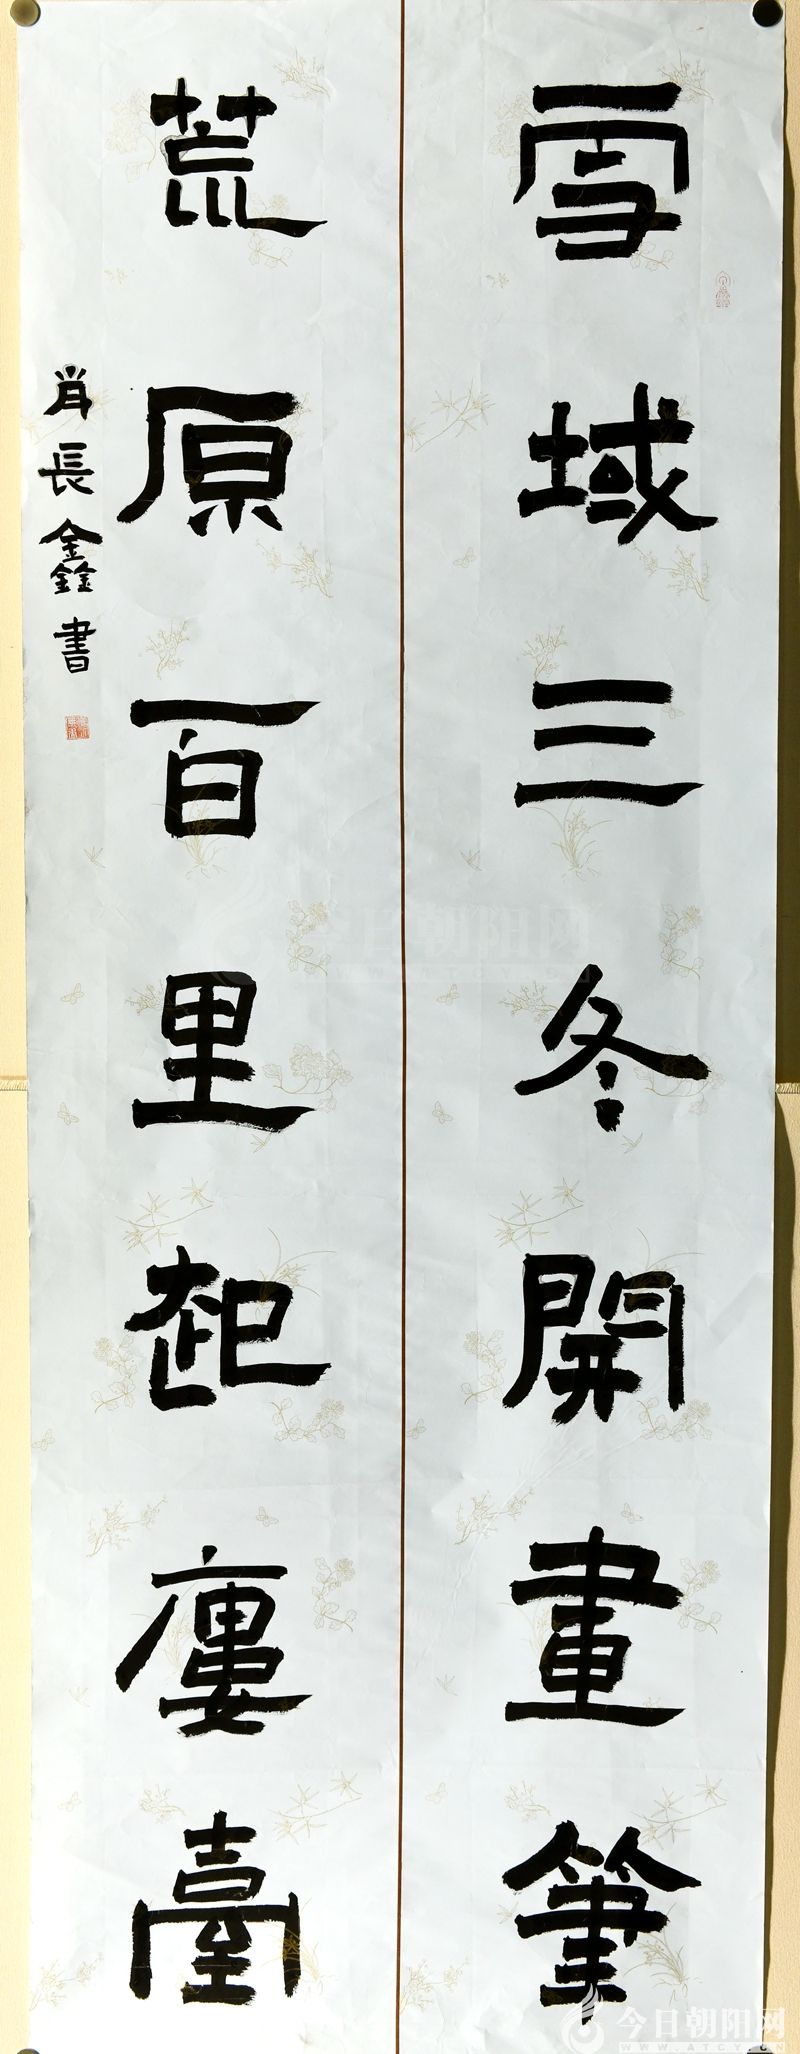 雪域三冬開畫筆
荒原百里起廔臺
肖長鑫書
今日朝阳网
WWW.ATCY.CN